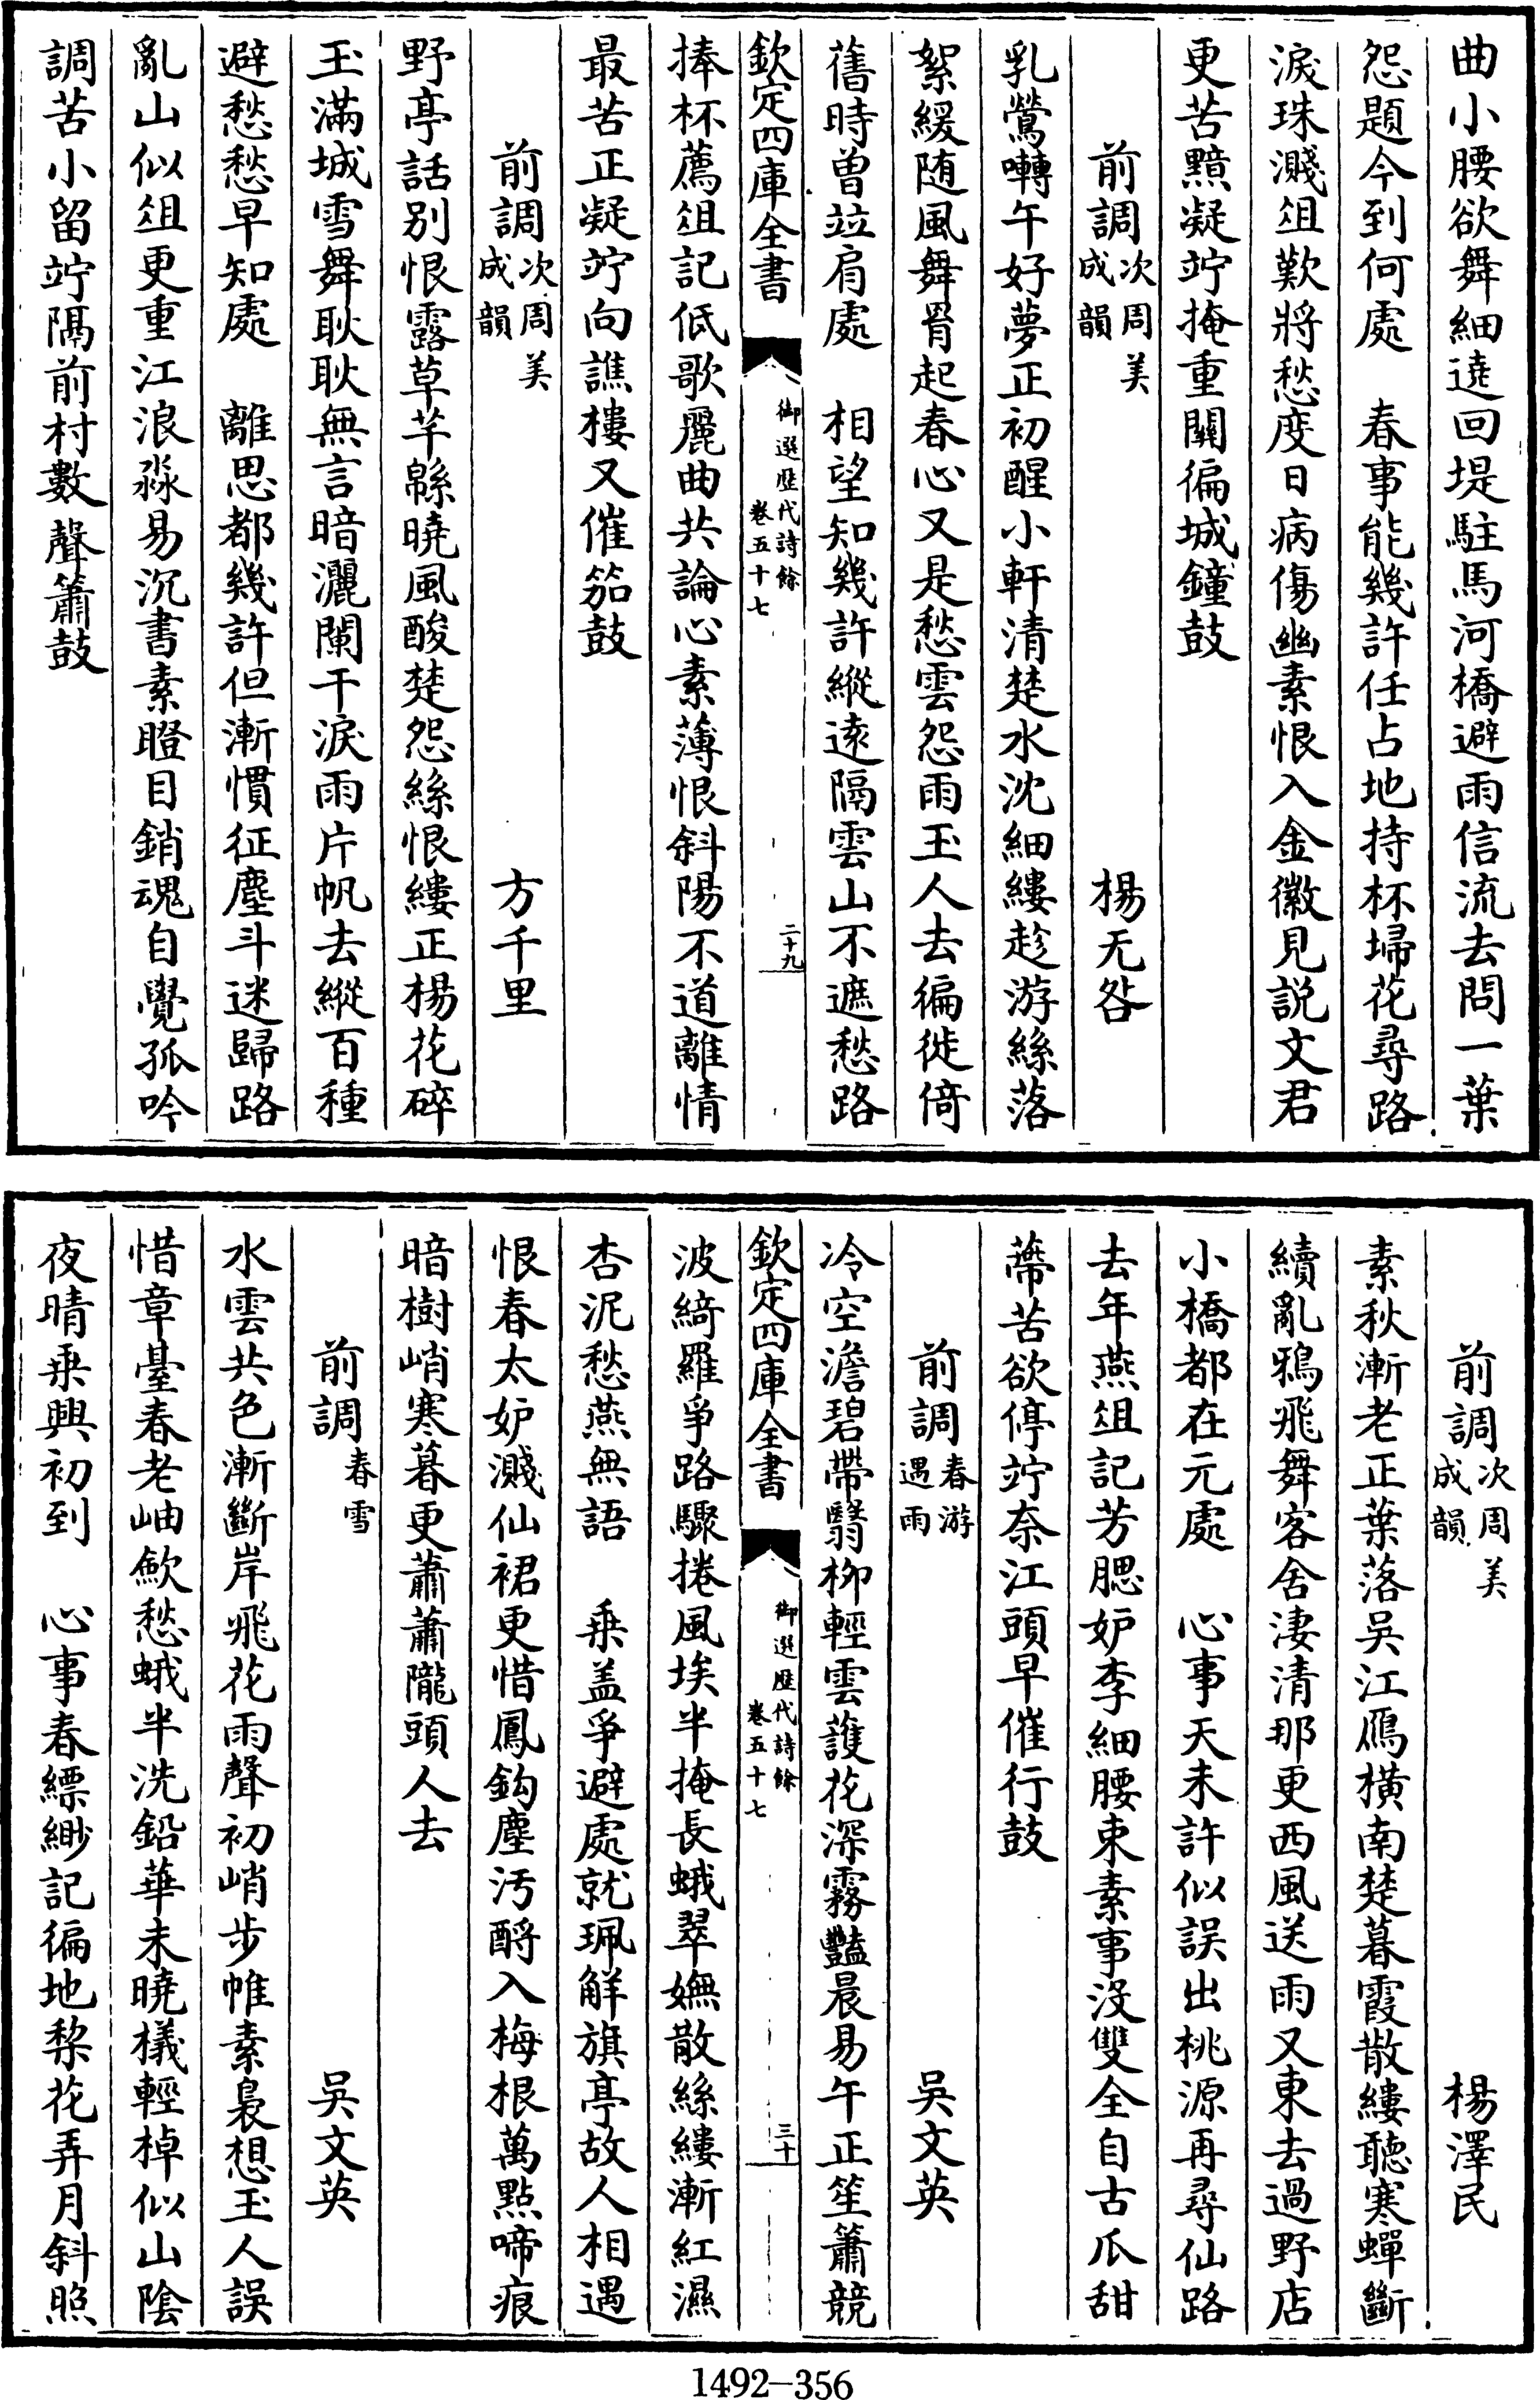 曲小腰欲舞細遶回堤駐馬河橋避雨信流去問一葉
怨題今到何處　春事能幾許任占地持杯埽花尋路
淚珠濺俎歎將愁度日病傷幽素恨入金徽見說文君
更苦黯凝竚掩重關徧城鐘鼓
前調次周美成韻　楊无咎
乳鶯囀午好夢正初醒小軒清楚水沈細縷趁游絲落
絮緩随風舞胥起春心又是愁雲怨雨玉人去徧徙倚
舊時曾竝肩處　相望知幾許縱遠隔雲山不遮愁路
捧杯薦俎記低歌麗曲共論心素薄恨斜陽不道離情
最苦正凝竚向譙樓又催笳鼓
前調次周美成韻　方千里
野亭話別恨露草芊緜曉風酸楚怨絲恨縷正楊花碎
玉滿城雪舞耿耿無言暗灑闌干淚雨片帆去縱百種
避愁愁早知處　離思都幾許但漸慣征塵斗迷歸路
亂山似俎更重江浪淼易沉書素瞪目銷魂自覺孤吟
調苦小留竚隔前村數聲簫鼓
欽定四庫全書　御選歷代詩餘卷五十七　二十九
前調次周美成韻　楊澤民
素秋漸老正葉落吳江鴈橫南楚暮霞散縷聽寒蟬斷
續亂鴉飛舞客舍淒清那更西風送雨又東去過野店
小橋都在元處　心事天未許似誤出桃源再尋仙路
去年燕俎記芳腮妒李細腰束素事沒雙全自古瓜甜
蔕苦欲停竚奈江頭早催行鼓
前調春游遇雨　吳文英
冷空澹碧帶翳柳輕雲護花深霧豔晨易午正笙簫競
波綺羅爭路驟捲風埃半掩長蛾翠嫵散絲縷漸紅濕
杏泥愁燕無語　乗盖爭避處就珮解旗亭故人相遇
恨春太妒濺仙裙更惜鳳鈎塵汚酹入梅根萬點啼痕
暗樹峭寒暮更蕭蕭隴頭人去
前調春雪　吳文英
水雲共色漸斷岸飛花雨聲初峭步帷素裊想玉人誤
惜章臺春老岫歛愁蛾半洗鉛華未曉檥輕棹似山陰
夜晴乗興初到　心事春縹緲記徧地棃花弄月斜照
欽定四庫全書　御選歷代詩餘卷五十七　三十
1492-356